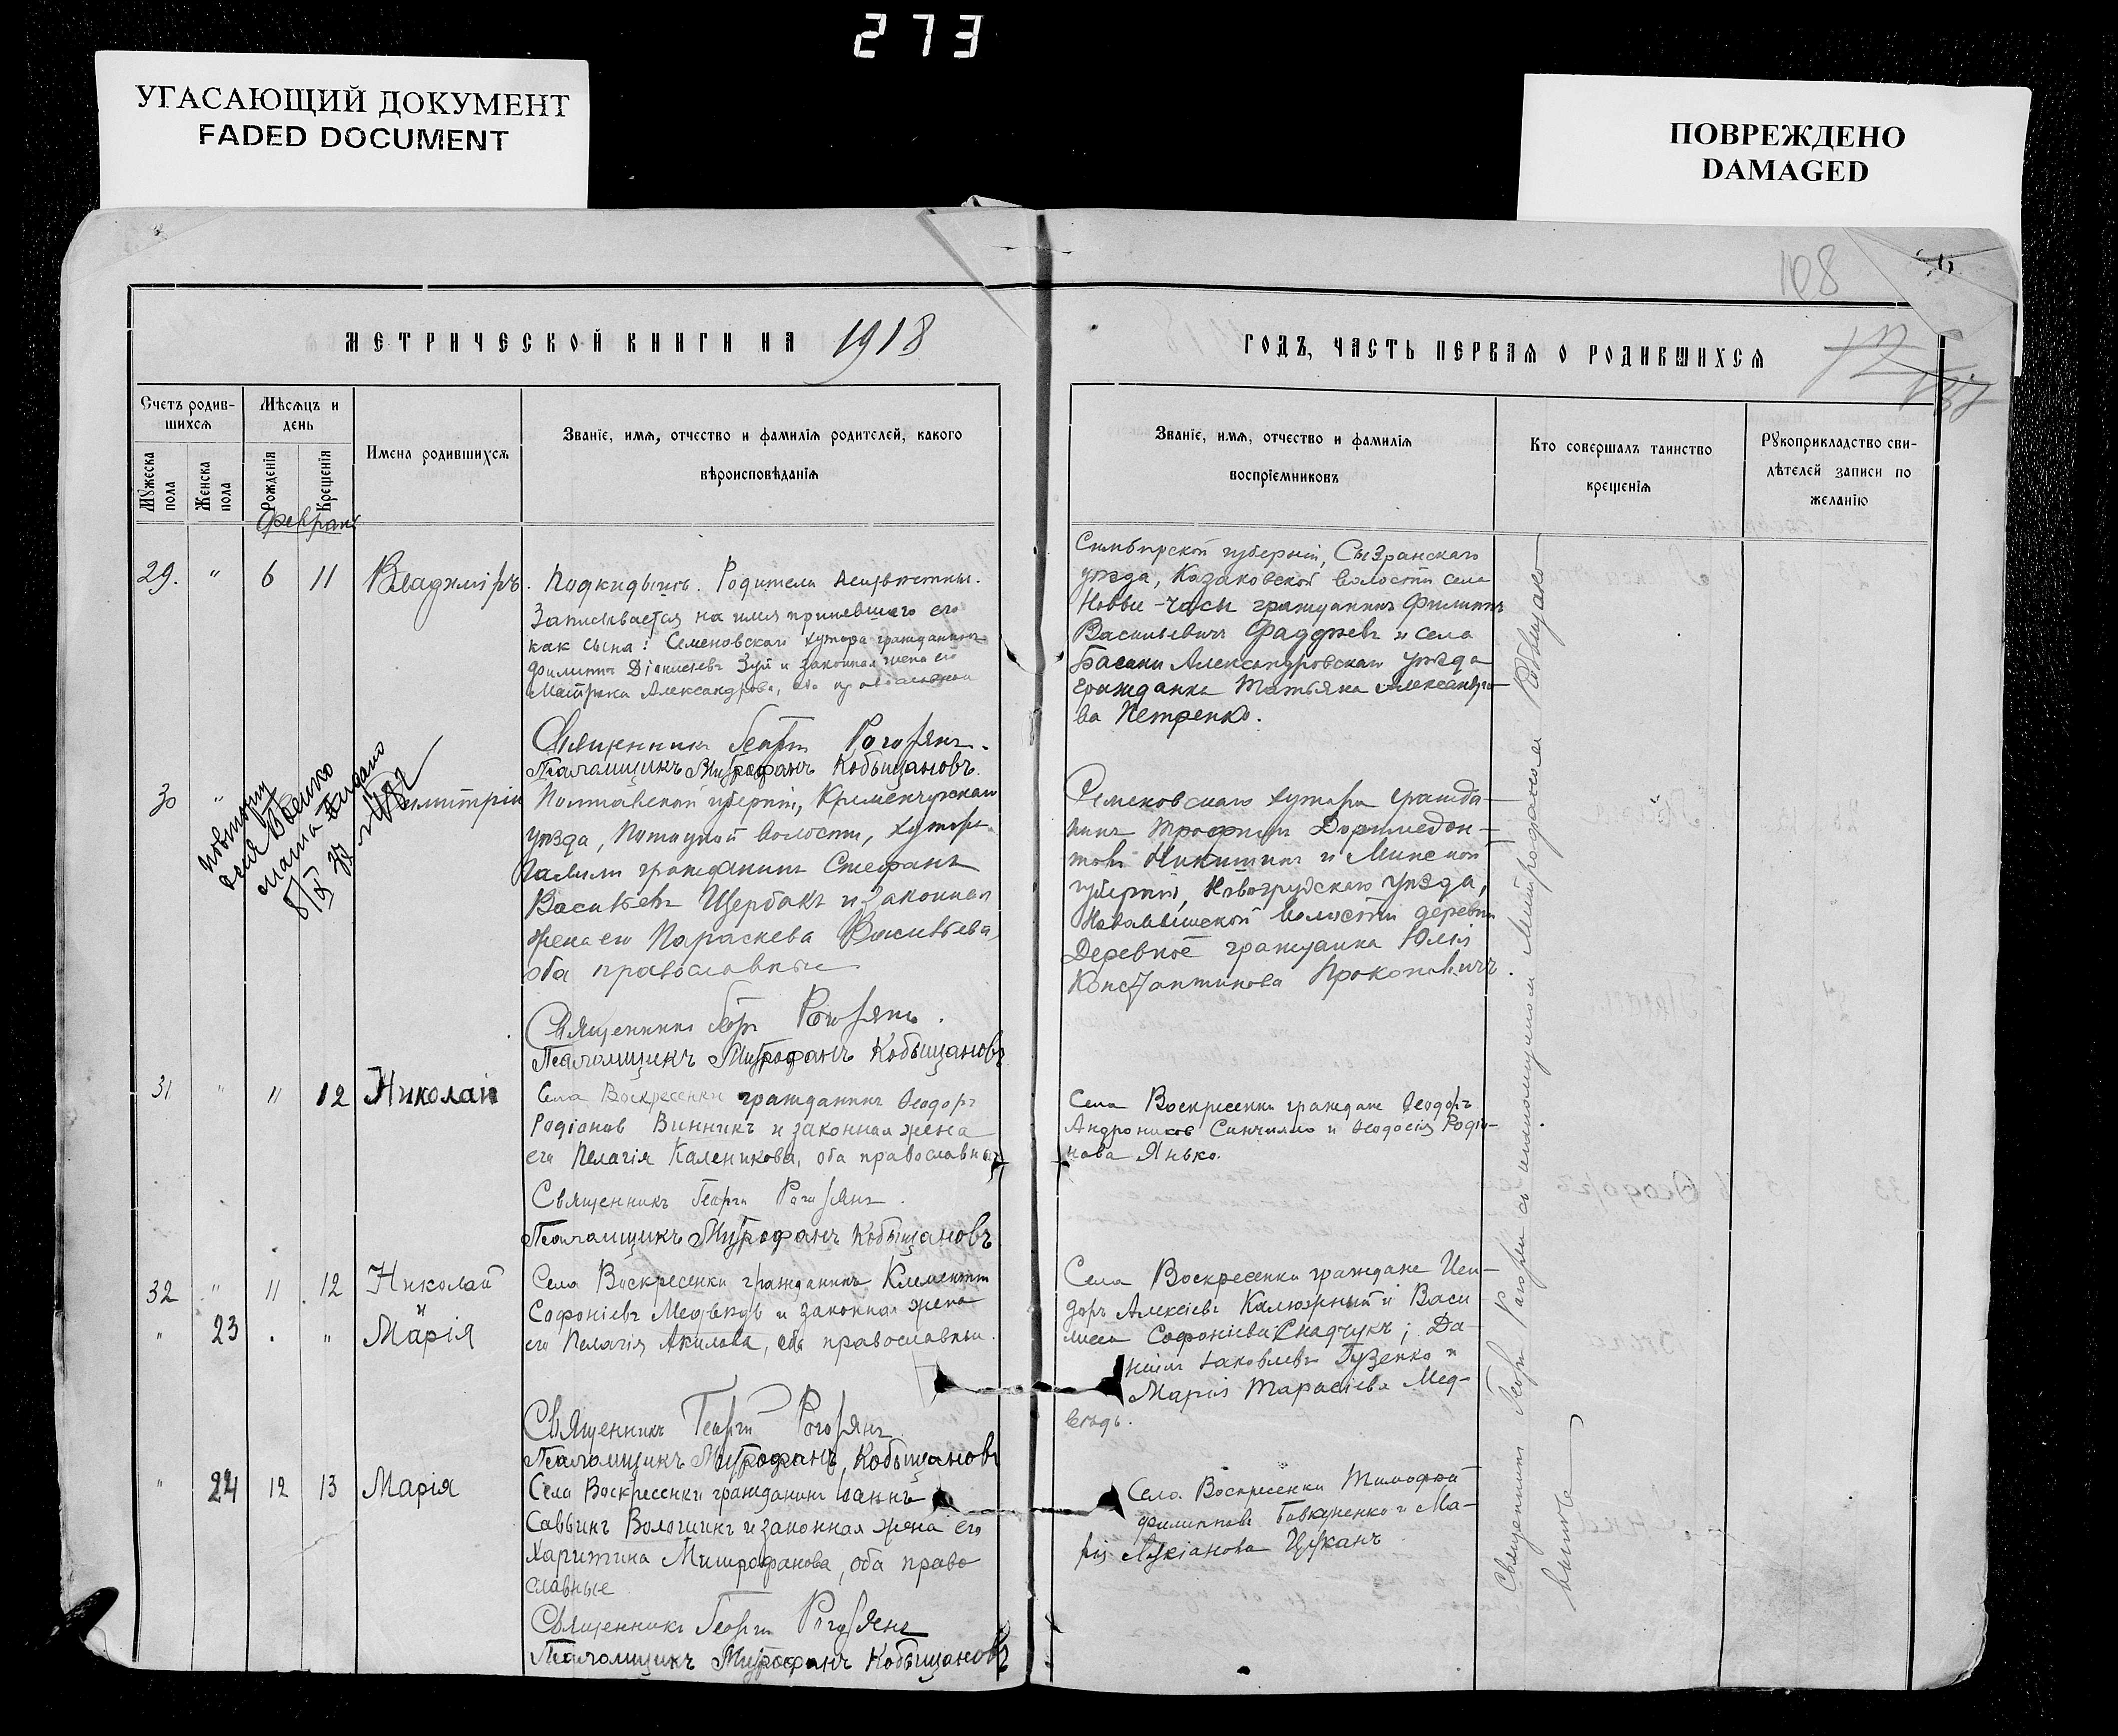 273
УГАСАЮЩИЙ ДОКУМЕНТ
FADED DOCUMENT
ПОВРЕЖДЕНО
DAMAGED
108
МЕТРИЧЕСКОЙ КНИГИ НА 1918
Счетъ родив-
шихся
Мѣсяцъ и
день
Мужеска
пола
Женска
пола
Рожденія
Крещенія
Имена родившихся
Званіе, имя, отчество и фамилія родителей, какого
вѣроисповѣданія
29. " 6 11 Владиміръ.
Подкидышъ. Родители неизвѣстны.
Записывается на имя принявшаго его
как сына: Семеновскаго хутора гражданинъ
Филиппъ Діонисіевъ Зуй и законная жена его
Матрона Александрова, оба православной
Священникъ Георгій
Псаломщикъ Митрофанъ Кобыщановъ.
30 "
повторну
8/IX
Димитрій
Полтавской губерніи, Кременчугскаго
уѣзда, Потоцкой волости, хутора
гражданинъ Стефанъ
Васильевъ Щербакъ и законная
жена его Параскева Васильева,
оба православные
Священникъ
Псаломщикъ Митрофанъ Кобыщановъ
31 " 11 12 Николай
Села Воскресенки гражданинъ Ѳеодоръ
Родіоновъ Винникъ и законная жена
его Пелагія Каленикова, оба православные
Священникъ Георгій
Псаломщикъ Митрофанъ Кобыщановъ
32 " 11 12 Николай
и
" 23 " Марія
Села Воскресенки гражданинъ Климентій
Софоніевъ Медвѣдь и законная жена
его Пелагія Акилова, оба православные.
Священникъ Георгій
Псаломщикъ Митрофанъ Кобыщановъ
" 24 12 13 Марія
Села Воскресенки гражданинъ Іоаннъ
Саввинъ Волошинъ и законная жена его
Харитина Митрофанова, оба право
славные
Священникъ Георгій
Псаломщикъ Митрофанъ Кобыщановъ
ГОДЪ, ЧАСТЬ ПЕРВАЯ О РОДИВШИХСЯ
Званіе, имя, отчество и фамилія
воспріемниковъ
Кто совершалъ таинство
крещенія
Рукоприкладство сви-
дѣтелей записи по
желанію
Симбирской губерніи, Сызранскаго
уѣзда, Казаковской волости села
Новые-Часы гражданинъ Филиппъ
Васильевичъ Фаддѣевъ и села
Басани Александровскаго уѣзда
гражданка Татьяна Александро-
ва Петренко.
Семеновскаго хутора гражда-
нинъ Трофимъ Доримедон-
товъ Никитинъ и Минской
губерніи, Новогрудскаго уѣзда,
волости деревни
Деревное гражданка Юлія
Константинова Прокоповичъ.
Села Воскресенки граждане Ѳеодоръ
Андрониковъ и Ѳеодосія Родіо-
нова Янько.
Села Воскресенки граждане Иси-
доръ Алексіевъ Калюжный и Васи
лисса Софоніева Снадчукъ; Да-
ніилъ Іаковлевъ Гузенко и
Марія Тарасіева Мед-
вѣдь.
Села Воскресенки Тимофей
Филипповъ Бовкуненко и Ма-
рія Лукіанова Цуканъ
Священникъ Георгій съ псаломщикомъ Митрофаномъ Кобыщано-
вымъ